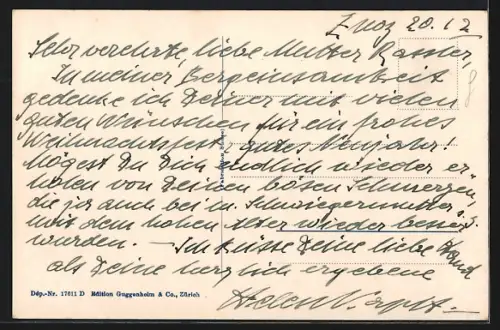 Zuoz 20.12
Sehr verehrte, liebe Mutter
In meiner Bergeinsamkeit
gedenke ich Deiner mit vielen
guten Wünschen für ein frohes
Weihnachtsfest gutes Neujahr!
Mögest Du Dich endlich wieder er-
holen von Deinen bösen Schmerzen,
die ja auch bei m. Schwiegermutter
mit dem hohen Alter wieder besser
wurden. – Ich küsse Deine liebe Hand
als Deine herzlich ergebene
Helen
Dép.-Nr. 17611 D Edition Guggenheim & Co., Zürich